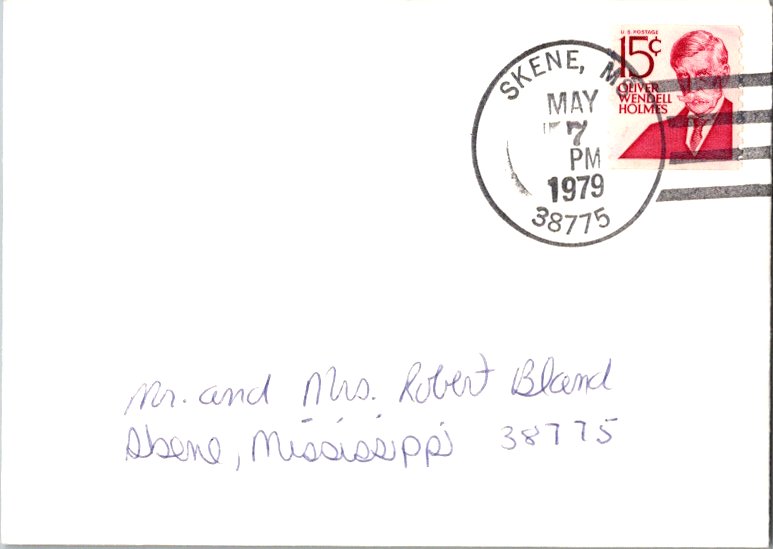 U.S. POSTAGE
15¢
OLIVER
WENDELL
HOLMES
SKENE, MS
MAY
7
PM
1979
38775
Mr. and Mrs. Robert Bland
Skene, Mississippi 38775